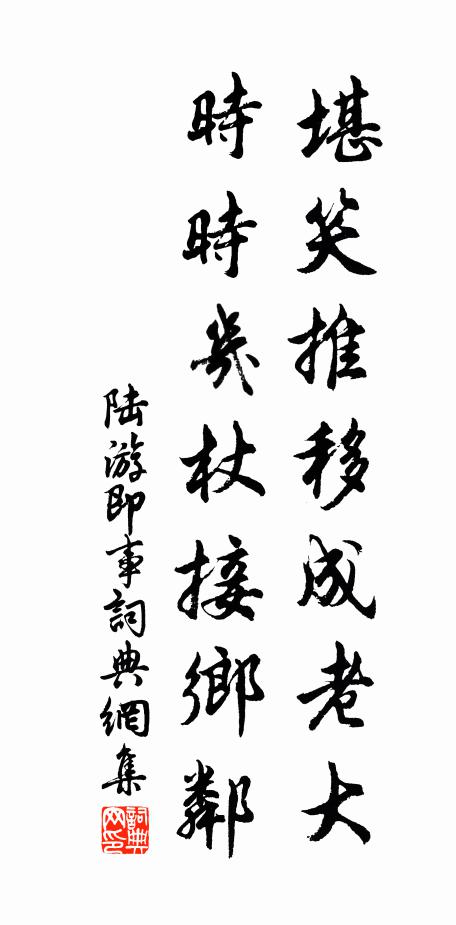 堪笑推移成老大
時時幾杖接鄉鄰
陸游即事詞典網集
詞典网印